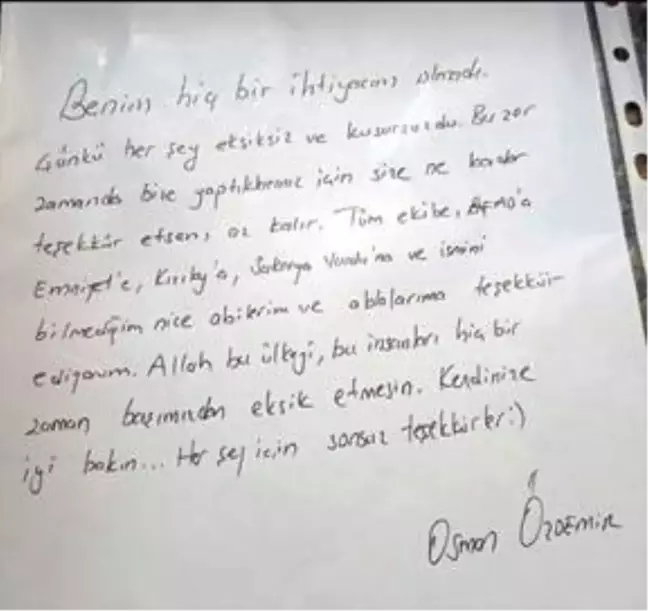 Benim hiç bir ihtiyacım olmadı.
Çünkü her şey eksiksiz ve kusursuzdu. Bu zor
zamanda bize yaptıklarınız için size ne kadar
teşekkür etsem, az kalır. Tüm ekibe, AFAD'a
Emniyet'e, Kızılay'a, Sakarya Vakfı'na ve ismini
bilmediğim nice abilerim ve ablalarıma teşekkür
ediyorum. Allah bu ülkeyi, bu insanları hiç bir
zaman başımızdan eksik etmesin. Kendinize
iyi bakın... Her şey için sonsuz teşekkürler:)
Osman Özdemir